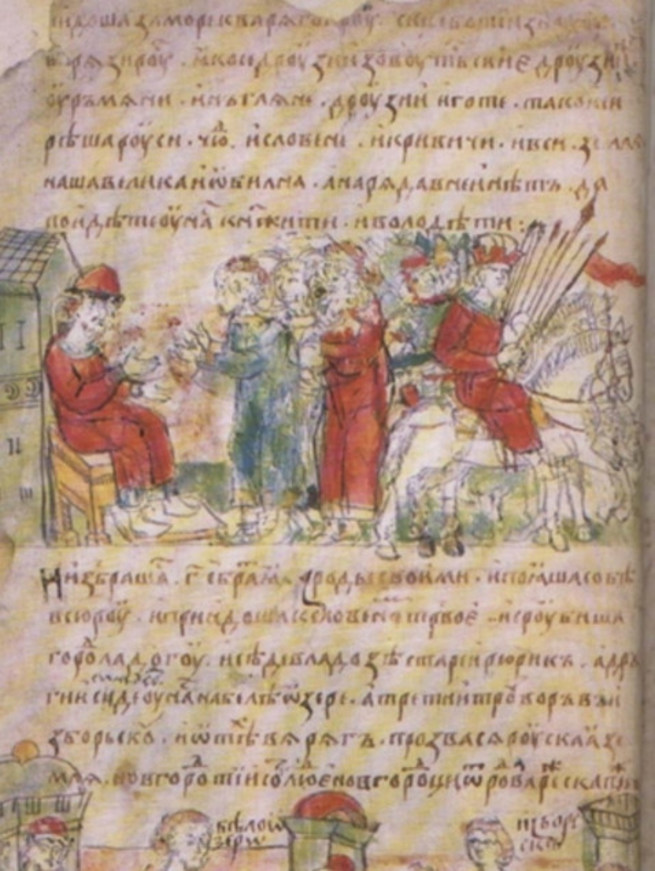 идоша за море к варягом к роу
варязи роу . яко се дроузии зовоуться свие дроузии
оурмяни . инъгляне . дроузии и готе . тако и си
рѣша роуси . чю . и словене . и кривичи . и вси . земля
наша велика и ѡбилна . а наряда в неи нѣтъ . да
поидѣте оу на кнжити . и володѣти :
И избрашася . г . братья с роды своими . и пояша собѣ
всю роу . и придоша к словено первое . и сроубиша
горо ладогоу . и сѣде в ладозѣ старѣи рюрикъ . а дроу
гии сиде оу на на бѣлѣ ѡзере . а третии троуворъ въ и
зборьско . и ѿ тѣ варягъ . прозвася роуская зе
мля . новгоро тии люе новгороци ѿ рода варежска
бѣлоо зеро
изборскъ